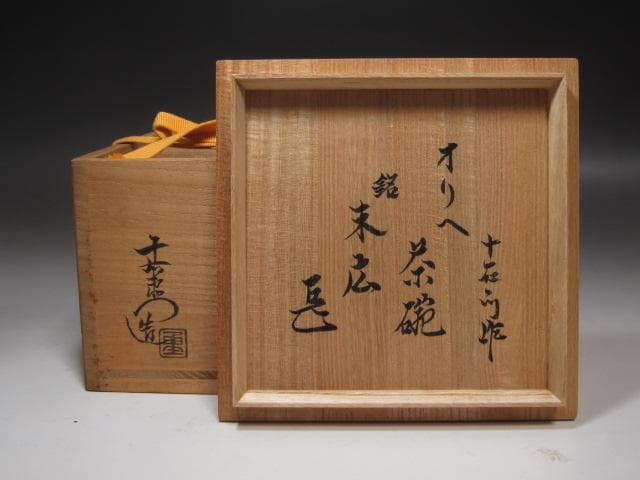 十右衛門作
オリベ
茶碗
銘
末広
十右衛門
造